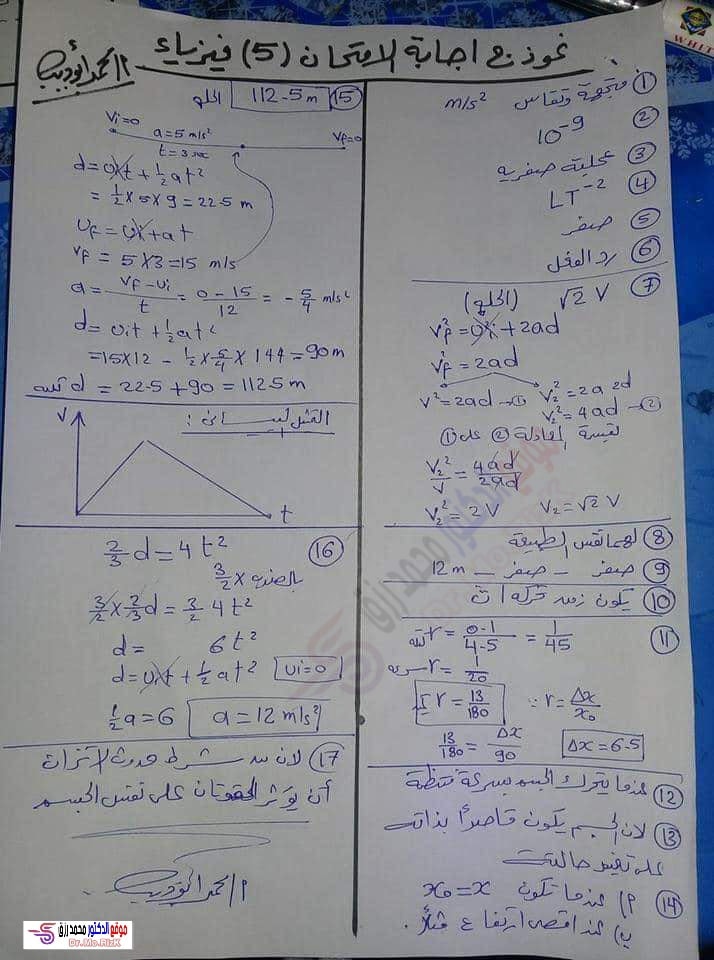 نموذج اجابة الامتحان (5) فيزياء
① متجهة وتقاس m/s²
② 10⁻⁹
③ عجلته صفريه
④ LT⁻²
⑤ صفر
⑥ رد الفعل
⑦ √2 V (الحل)
Vf² = Vi² + 2ad
Vf² = 2ad
V² = 2ad → ① V₂² = 2a 2d
V₂² = 4ad → ②
② على ①
V₂²/V = 4ad/2ad
V₂² = 2V V₂ = √2 V
⑧ لهما نفس الطبيعة
⑨ صفر - صفر - 12m
⑩ يكون زمن حركة
⑪ r = 0.1/4.5 = 1/45
r = 1/20
r = 13/180 ∵ r = Δx/x₀
13/180 = Δx/90 Δx = 6.5
⑫ عندما يتحرك الجسم بسرعة منتظمة
⑬ لان الجسم يكون قاصراً بذاته
على تغيير حالته
⑭ أ) عندما تكون x₀ = x
ب) عند اقصى ارتفاع مثلاً.
⑮ 112.5m الحل
Vi=0 a=5 m/s² Vf=0
t=3 sec
d = Vit + ½at²
= ½ × 5 × 9 = 22.5 m
Vf = Vi + at
Vf = 5 × 3 = 15 m/s
a = Vf - Vi/t = 0 - 15/12 = -5/4 m/s²
d = Vit + ½at²
= 15×12 - ½ × 5/4 × 144 = 90m
d = 22.5 + 90 = 112.5 m
التمثيل البيانى :
V
t
⑯ ⅔d = 4t²
بالضرب × 3/2
3/2 × 2/3 d = 3/2 4t²
d = 6t²
d = Vit + ½at² Vi=0
½a = 6 a = 12 m/s²
⑰ لان من شرط حدوث الاتزان
أن يؤثر القوتان على نفس الجسم
موقع الدكتور محمد رزق
موقع الدكتور محمد رزق
Dr.Mo.RizK